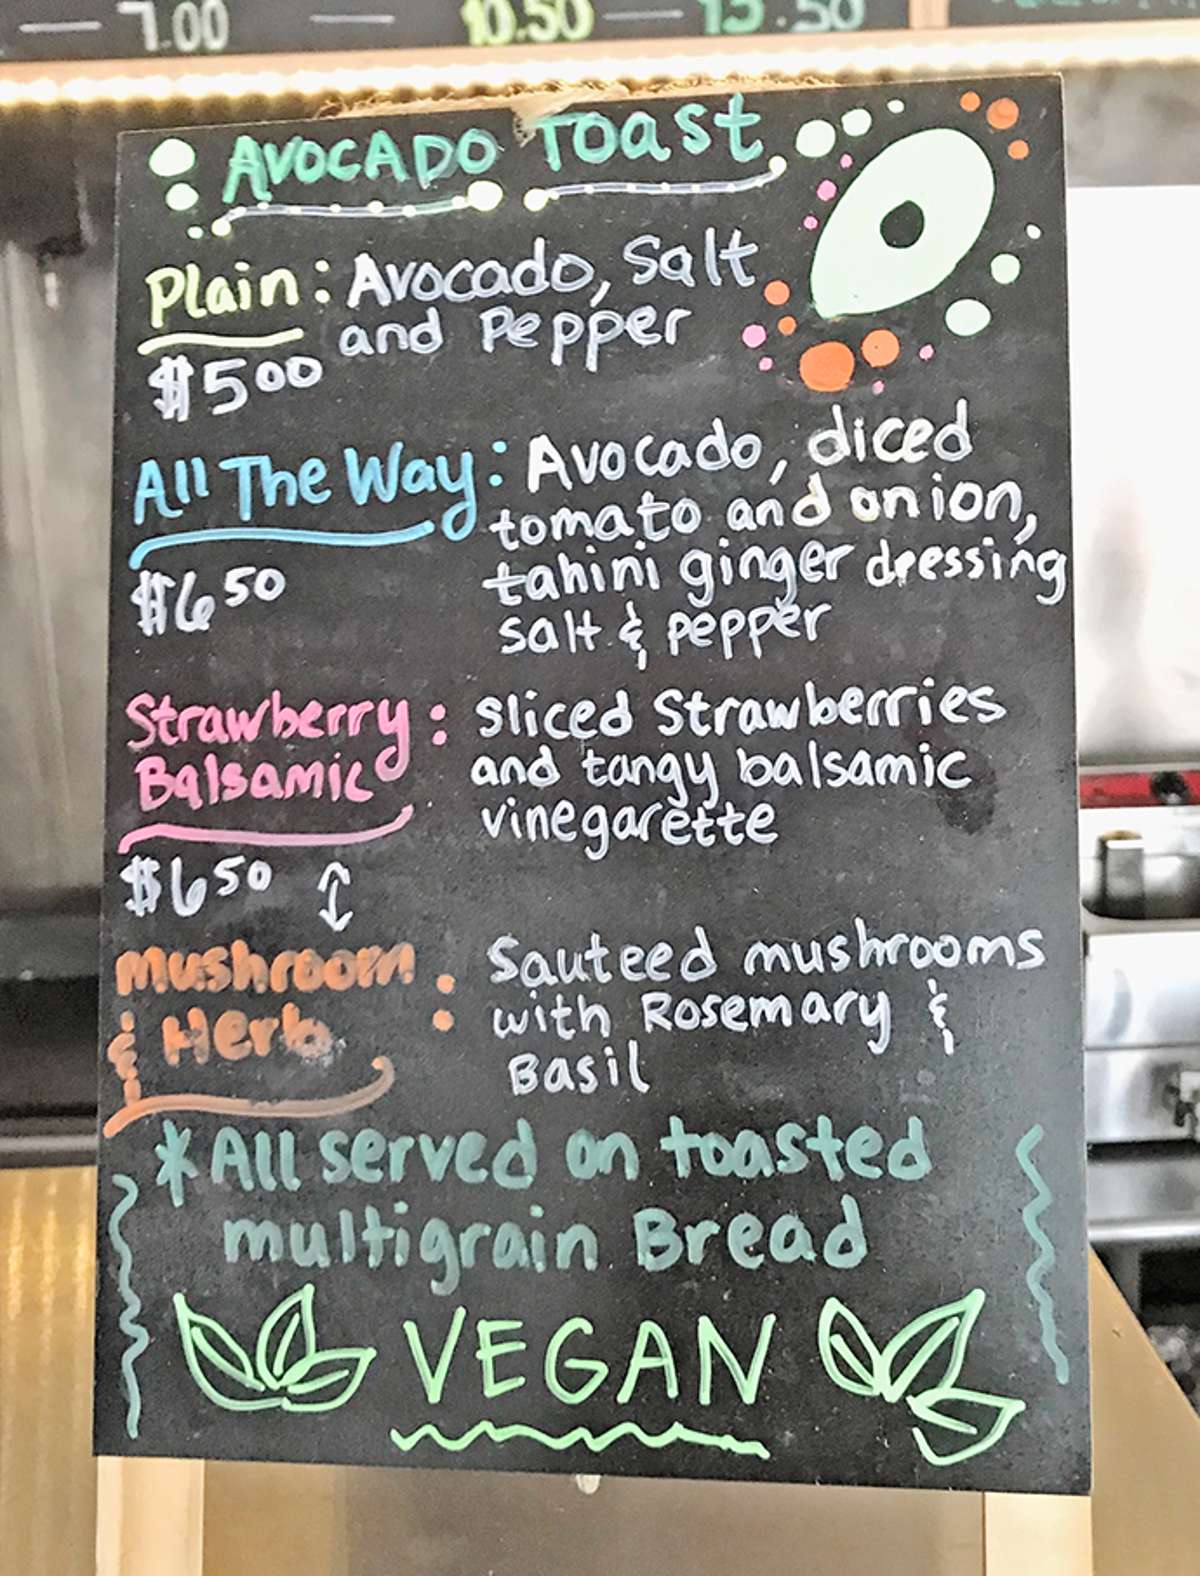 7.00 10.50 13.50
AVOCADO TOAST
Plain: Avocado, Salt
and Pepper
$5.00
All The Way: Avocado, diced
tomato and onion,
tahini ginger dressing
$6.50
salt & pepper
Strawberry Balsamic: sliced Strawberries
and tangy balsamic
vinegarette
$6.50
Mushroom & Herb: Sauteed mushrooms
with Rosemary &
Basil
*All served on toasted
multigrain Bread
VEGAN